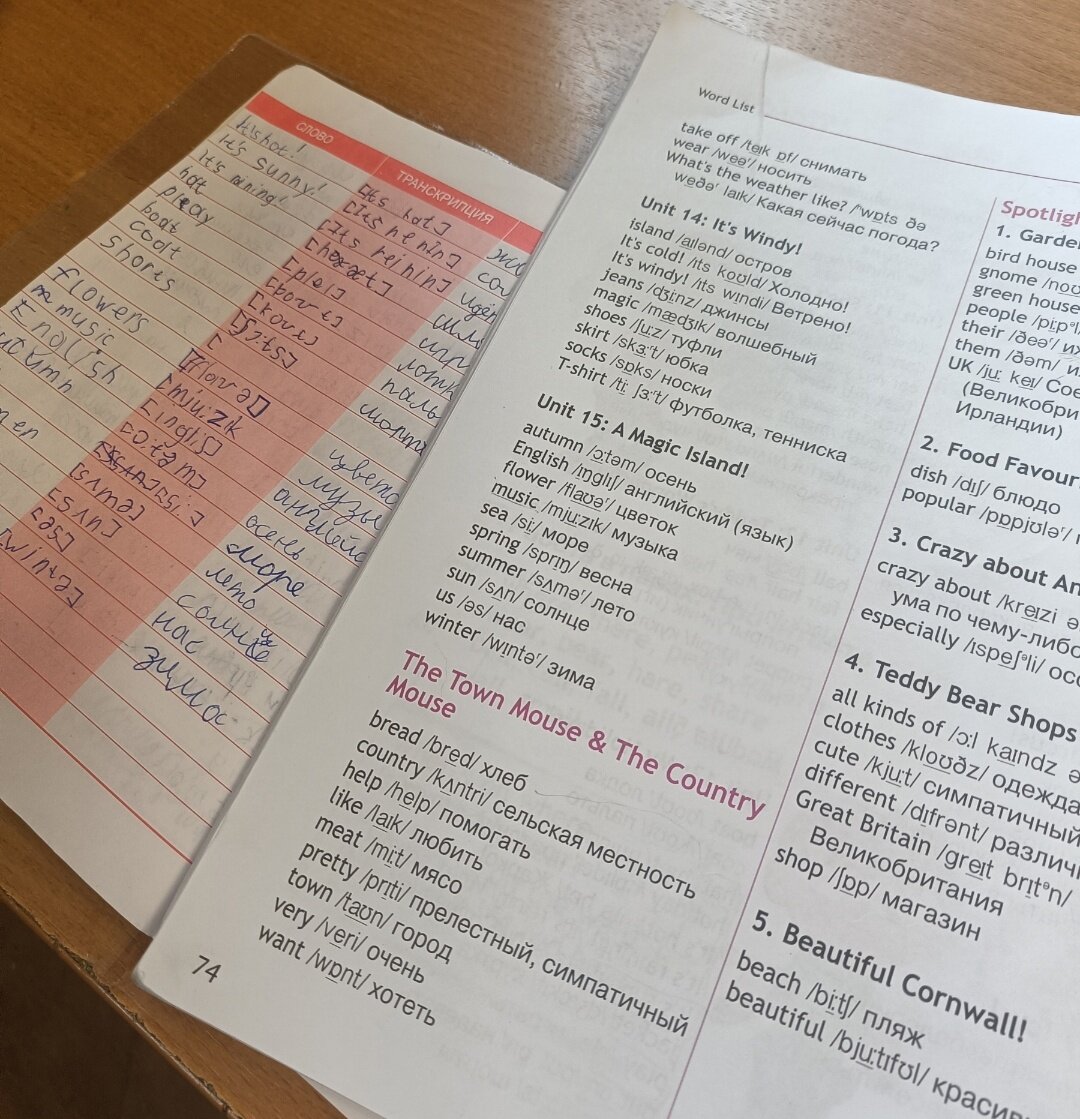 СЛОВО
ТРАНСКРИПЦИЯ
It's hot!
It's sunny!
It's raining!
hat
boat
coat
shorts
flowers
music
English
[its hot]
[mju:zik
[sʌmə]
[sʌn]
[əs]
[wintə]
осень
море
лето
нас
зима
Word List
take off /teɪk ɒf/ снимать
wear /weəʳ/ носить
What's the weather like? /ʷwɒts ðə
weðəʳ laɪk/ Какая сейчас погода?
Unit 14: It's Windy!
island /aɪlənd/ остров
It's cold! /ɪts koʊld/ Холодно!
It's windy! /ɪts wɪndi/ Ветрено!
jeans /dʒi:nz/ джинсы
magic /mædʒɪk/ волшебный
shoes /ʃu:z/ туфли
skirt /skɜ:ʳt/ юбка
socks /sɒks/ носки
T-shirt /ti: ʃɜ:ʳt/ футболка, тенниска
Unit 15: A Magic Island!
autumn /ɔ:təm/ осень
English /ɪŋglɪʃ/ английский (язык)
flower /flaʊəʳ/ цветок
music /mju:zɪk/ музыка
sea /si:/ море
spring /sprɪŋ/ весна
summer /sʌməʳ/ лето
sun /sʌn/ солнце
us /əs/ нас
winter /wɪntəʳ/ зима
The Town Mouse & The Country
Mouse
bread /bred/ хлеб
country /kʌntri/ сельская местность
help /help/ помогать
like /laɪk/ любить
meat /mi:t/ мясо
pretty /prɪti/ прелестный, симпатичный
town /taʊn/ город
very /veri/ очень
want /wɒnt/ хотеть
74
Spotlig
1. Garde
bird house
gnome /noʊ
green house
people /pi:pᵊl
their /ðeəʳ/ их
them /ðəm/ и
UK /ju: keɪ/ Сое
(Великобри
Ирландии)
2. Food Favour
dish /dɪʃ/ блюдо
popular /pɒpjʊləʳ/
3. Crazy about An
crazy about /kreɪzi ə
ума по чему-либо
especially /ɪspeʃᵊli/ осо
4. Teddy Bear Shops
all kinds of /ɔ:l kaɪndz ə
clothes /kloʊðz/ одежда
cute /kju:t/ симпатичный
different /dɪfrənt/ различн
Great Britain /greɪt brɪtᵊn/
Великобритания
shop /ʃɒp/ магазин
5. Beautiful Cornwall!
beach /bi:tʃ/ пляж
beautiful /bju:tɪfʊl/ краси